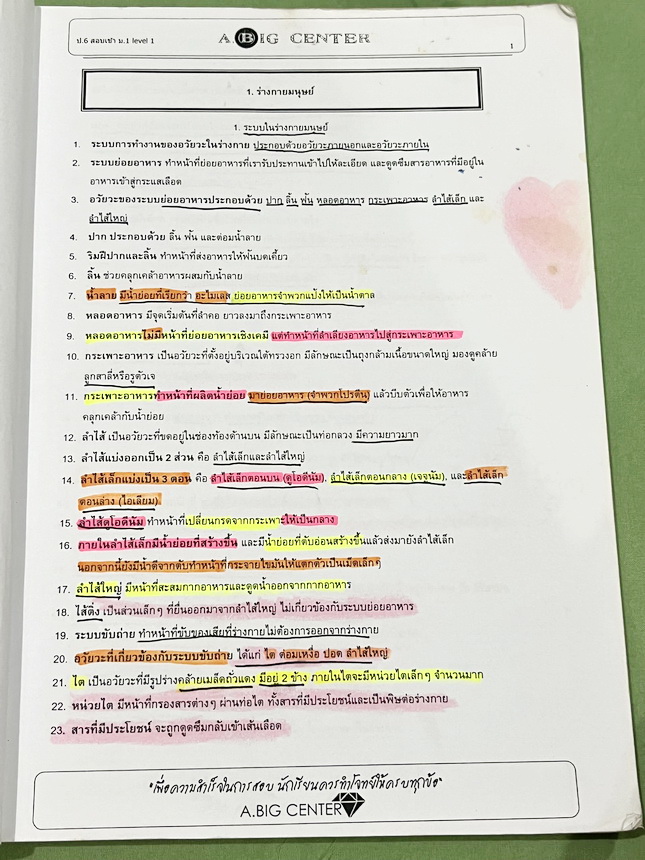 ป.6 สอบเข้า ม.1 level 1
A.BIG CENTER
1
1. ร่างกายมนุษย์
1. ระบบในร่างกายมนุษย์
1. ระบบการทำงานของอวัยวะในร่างกาย ประกอบด้วยอวัยวะภายนอกและอวัยวะภายใน
2. ระบบย่อยอาหาร ทำหน้าที่ย่อยอาหารที่เรารับประทานเข้าไปให้ละเอียด และดูดซึมสารอาหารที่มีอยู่ใน
อาหารเข้าสู่กระแสเลือด
3. อวัยวะของระบบย่อยอาหารประกอบด้วย ปาก ลิ้น ฟัน หลอดอาหาร กระเพาะอาหาร ลำไส้เล็ก และ
ลำไส้ใหญ่
4. ปาก ประกอบด้วย ลิ้น ฟัน และต่อมน้ำลาย
5. ริมฝีปากและลิ้น ทำหน้าที่ส่งอาหารให้ฟันบดเคี้ยว
6. ลิ้น ช่วยคลุกเคล้าอาหารผสมกับน้ำลาย
7. น้ำลาย มีน้ำย่อยที่เรียกว่า อะไมเลส ย่อยอาหารจำพวกแป้งให้เป็นน้ำตาล
8. หลอดอาหาร มีจุดเริ่มต้นที่ลำคอ ยาวลงมาถึงกระเพาะอาหาร
9. หลอดอาหารไม่มีหน้าที่ย่อยอาหารเชิงเคมี แต่ทำหน้าที่ลำเลียงอาหารไปสู่กระเพาะอาหาร
10. กระเพาะอาหาร เป็นอวัยวะที่ตั้งอยู่บริเวณใต้ทรวงอก มีลักษณะเป็นถุงกล้ามเนื้อขนาดใหญ่ มองดูคล้าย
ลูกสาลี่หรือรูตัวเจ
11. กระเพาะอาหารทำหน้าที่ผลิตน้ำย่อย มาย่อยอาหาร (จำพวกโปรตีน) แล้วบีบตัวเพื่อให้อาหาร
คลุกเคล้ากับน้ำย่อย
12. ลำไส้ เป็นอวัยวะที่ขดอยู่ในช่องท้องด้านบน มีลักษณะเป็นท่อกลวง มีความยาวมาก
13. ลำไส้แบ่งออกเป็น 2 ส่วน คือ ลำไส้เล็กและลำไส้ใหญ่
14. ลำไส้เล็กแบ่งเป็น 3 ตอน คือ ลำไส้เล็กตอนบน (ดูโอดีนัม), ลำไส้เล็กตอนกลาง (เจจูนัม), และลำไส้เล็ก
ตอนล่าง (ไอเลียม)
15. ลำไส้ดูโอดีนัม ทำหน้าที่เปลี่ยนกรดจากกระเพาะให้เป็นกลาง
16. ภายในลำไส้เล็กมีน้ำย่อยที่สร้างขึ้น และมีน้ำย่อยที่ตับอ่อนสร้างขึ้นแล้วส่งมายังลำไส้เล็ก
นอกจากนี้ยังมีน้ำดีจากตับทำหน้าที่กระจายไขมันให้แตกตัวเป็นเม็ดเล็กๆ
17. ลำไส้ใหญ่ มีหน้าที่สะสมกากอาหารและดูดน้ำออกจากกากอาหาร
18. ไส้ติ่ง เป็นส่วนเล็กๆ ที่ยื่นออกมาจากลำไส้ใหญ่ ไม่เกี่ยวข้องกับระบบย่อยอาหาร
19. ระบบขับถ่าย ทำหน้าที่ขับของเสียที่ร่างกายไม่ต้องการออกจากร่างกาย
20. อวัยวะที่เกี่ยวข้องกับระบบขับถ่าย ได้แก่ ไต ต่อมเหงื่อ ปอด ลำไส้ใหญ่
21. ไต เป็นอวัยวะที่มีรูปร่างคล้ายเมล็ดถั่วแดง มีอยู่ 2 ข้าง ภายในไตจะมีหน่วยไตเล็กๆ จำนวนมาก
22. หน่วยไต มีหน้าที่กรองสารต่างๆ ผ่านท่อไต ทั้งสารที่มีประโยชน์และเป็นพิษต่อร่างกาย
23. สารที่มีประโยชน์ จะถูกดูดซึมกลับเข้าเส้นเลือด
"เพื่อความสำเร็จในการสอบ นักเรียนควรทำโจทย์ให้ครบทุกข้อ"
A.BIG CENTER